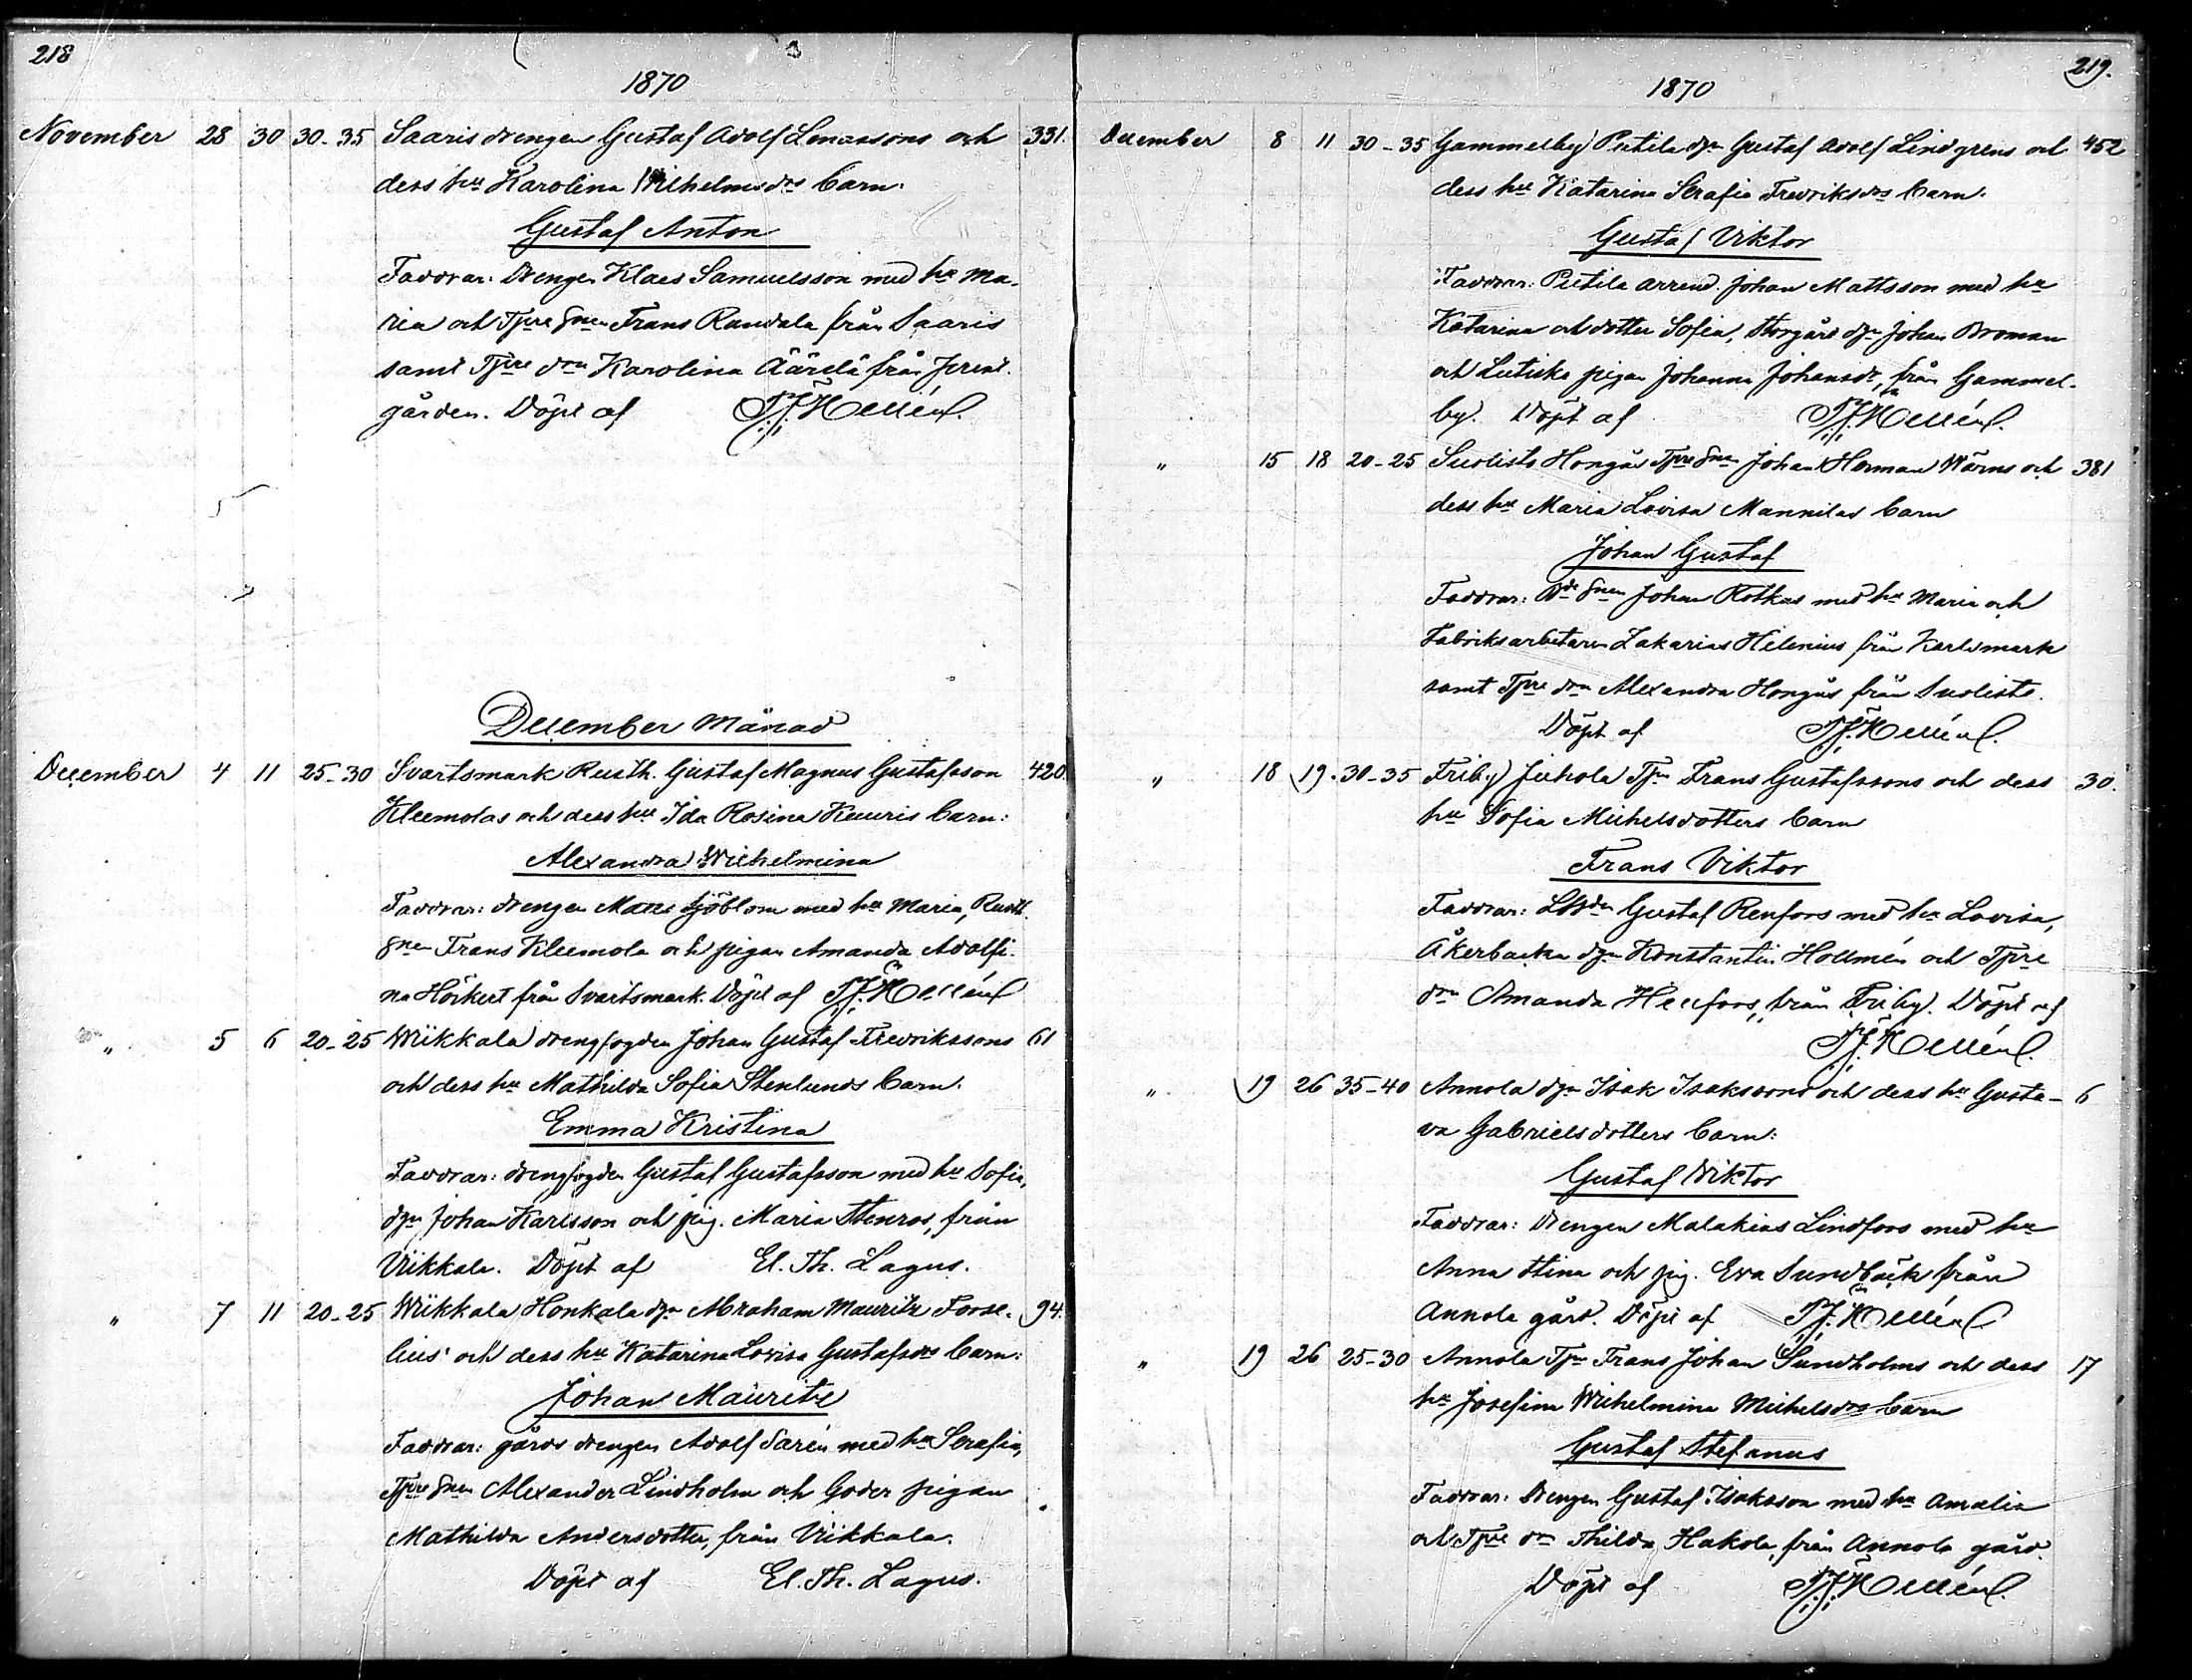 218
1870
November 28 30 30-35 Saaris drengen Gustaf Adolf Lenassons och 331.
dess hu Karolina Wilhelmsdrs barn:
Gustaf Anton
Faddrar: Drengen Klaes Samuelsson med hu Ma-
ria och Tjre Snen Frans Randala från Saaris
samt Tjre drn Karolina Äärelä från
gården. Döpt af
December Månad
December 4 11 25-30 Svartsmark Rusth. Gustaf Magnus Gustafsson 420.
Kleemolas och dess hu Ida Rosina Knuris barn:
Alexandra Wilhelmina
Faddrar: drengen Matts Sjöblom med hu Maria, Rusth.
Snen Frans Kleemola och pigan Amanda Adolfi-
na Höckert från Svartsmark. Döpt af
" 5 6 20-25 Wiikkala drengfogden Johan Gustaf Fredrikssons 61
och dess hu Mathilda Sofia Stenlunds barn.
Emma Kristina
Faddrar: drengfogden Gustaf Gustafsson med hu Sofia,
dgn Johan Karlsson och pig. Maria Stenros, från
Viikkala. Döpt af El. Th. Lagus.
" 7 11 20-25 Wiikkala Honkala dgn Abraham Mauritz Forse- 94.
lius' och dess hu Katarina Lovisa Gustafsdrs barn:
Johan Mauritz
Faddrar: gårds drengen Adolf Sarén med hu Serafia,
Tjre Snen Alexander Lindholm och Goder pigan
Mathilda Andersdotter, från Viikkala.
Döpt af El. Th. Lagus.
219.
1870
December 8 11 30-35 Gammelby Pietila dgn Gustaf Adolf Lindgrens och 452
dess hu Katarina Serafia Fredriksdrs barn:
Gustaf Viktor
Faddrar: Pietila arrend. Johan Mattsson med hu
Katarina och dotter Sofia, Storgård dgn Johan Broman
och pigan Johanna Johansdr, från Gammel-
by. Döpt af
" 15 18 20-25 Suolisto Hongås Tjre Snen Johan Herman Wärns och 381
dess hu Maria Lovisa Mannilas barn
Johan Gustaf
Faddrar: Bde Snen Johan Rotkus med hu Maria och
Fabriksarbetaren Zakarias Helenius från Karlsmark
samt Tjre drn Alexandra Hongås från Suolisto.
Döpt af
" 18 19. 30-35 Friby Jukola Tjrn Frans Gustafssons och dess 30.
hu Sofia Michelsdotters barn
Frans Viktor
Faddrar: Gustaf Renfors med hu Lovisa,
Åkerbacka dgn Konstantin Hollmén och Tjre
drn Amanda Helfors, från Friby. Döpt af
" 19 26 35-40 Annola dgn Isak Isakssons och dess hu Gusta- 6
va Gabrielsdotters barn:
Gustaf Wiktor
Faddrar: Drengen Malakias Lindfors med hu
Anna Stina och pig. Eva Sundbäck från
Annola gård. Döpt af
" 19 26 25-30 Annola Tjrn Frans Johan Sundholms och dess 17
hu Josefina Wilhelmina Michelsdrs barn
Gustaf Stefanus
Faddrar: Drengen Gustaf Isaksson med hu Amalia
och Tjre drn Thilda Hakola, från Annola gård.
Döpt af